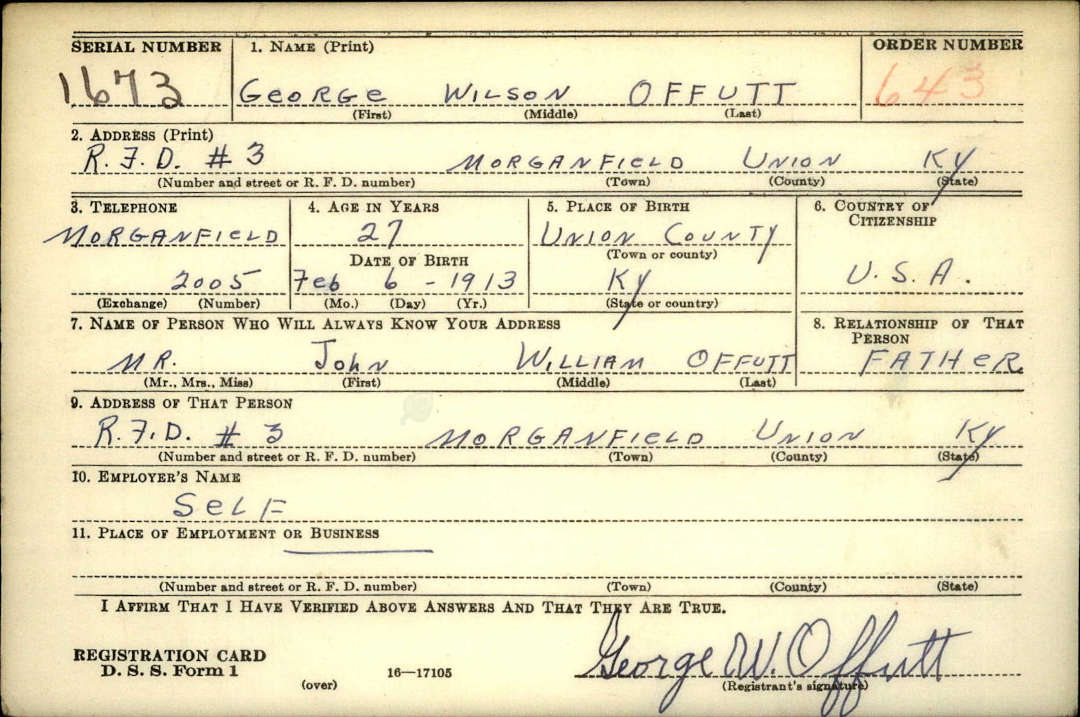 SERIAL NUMBER 1. NAME (Print) ORDER NUMBER
1673 GEORGE WILSON OFFUTT 643
(First) (Middle) (Last)
2. ADDRESS (Print)
R.F.D. # 3 MORGANFIELD UNION KY
(Number and street or R. F. D. number) (Town) (County) (State)
3. TELEPHONE 4. AGE IN YEARS 5. PLACE OF BIRTH 6. COUNTRY OF CITIZENSHIP
MORGANFIELD 27 UNION COUNTY
DATE OF BIRTH (Town or county)
2005 Feb 6 - 1913 KY U.S.A.
(Exchange) (Number) (Mo.) (Day) (Yr.) (State or country)
7. NAME OF PERSON WHO WILL ALWAYS KNOW YOUR ADDRESS 8. RELATIONSHIP OF THAT PERSON
MR. JOHN WILLIAM OFFUTT FATHER
(Mr., Mrs., Miss) (First) (Middle) (Last)
9. ADDRESS OF THAT PERSON
R.F.D. # 3 MORGANFIELD UNION KY
(Number and street or R. F. D. number) (Town) (County) (State)
10. EMPLOYER'S NAME
SELF
11. PLACE OF EMPLOYMENT OR BUSINESS
(Number and street or R. F. D. number) (Town) (County) (State)
I AFFIRM THAT I HAVE VERIFIED ABOVE ANSWERS AND THAT THEY ARE TRUE.
REGISTRATION CARD George W. Offutt
D. S. S. Form 1 (over) 16—17105 (Registrant's signature)